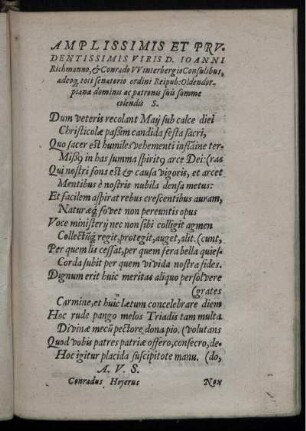 AMPLISSIMIS ET PRV-
DENTISSIMIS VIRIS D. IOANNI
Richmanno, & Conrado VVinterbergio Consulibus,
adeoq; toti senatorio ordini Reipub: Oldendor-
piana dominis ac patronis suis summe
colendis S.
Dum veteris recolant Maij sub calce diei
Christicolæ paßim candida festa sacri,
Quo sacer est humiles vehementi instinc ter-
Mißq; in has summa spiritq arce Dei: (ras
Qui nostri fons est & causa vigoris, et arcet
Mentibus è nostris nubila densa metus:
Et facilem aspirat rebus crescentibus auram,
Naturæq; fovet non pereuntis opus
Voce ministerij nec non sibi colligit agmen
Collectuq; regit, protegit, auget, alit. (cunt,
Per quem lis cessat, per quem fera bella quies-
Corda subit per quem vivida nostra fides.
Dignum erit huic meritas aliquo persolvere
(grates
Carmine, et huic lætum concelebrare diem
Hoc rude pango melos Triadis tam multa
Divinæ mecū pectore dona pio. (volutans
Quod vobis patres patriæ offero, consecro, de-
Hoc igitur placida suscipitote manu. (do,
A. V. S.
Conradus Hoyerus Non